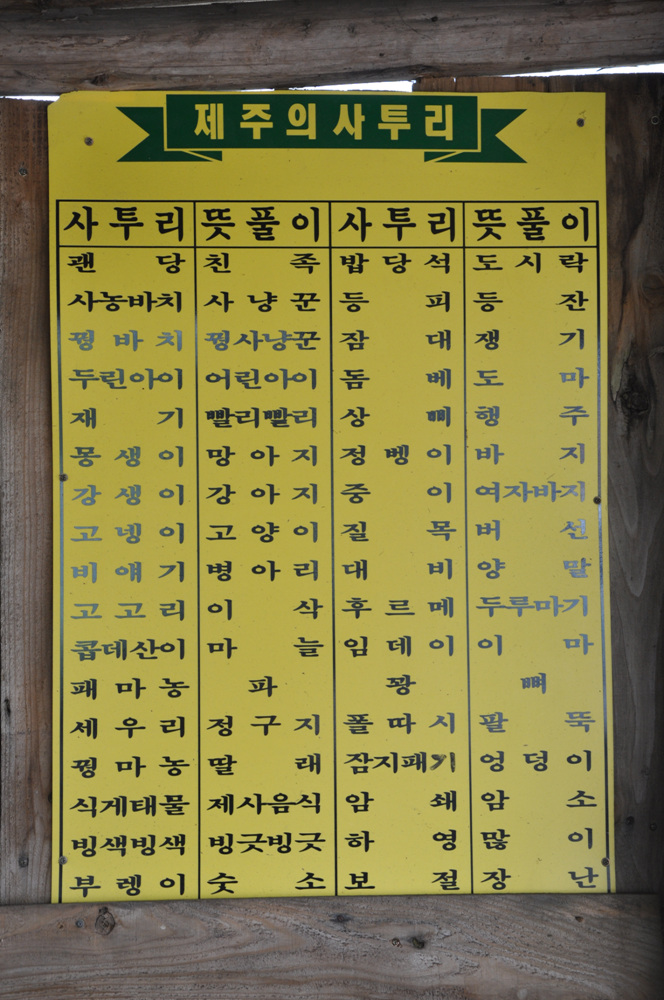 제주의사투리
사투리 뜻풀이 사투리 뜻풀이
괜당 친족 밥당석 도시락
사농바치 사냥꾼 등피 등잔
꿩바치 꿩사냥꾼 잠대 쟁기
두린아이 어린아이 돔베 도마
재기 빨리빨리 상삐 행주
몽생이 망아지 정벵이 바지
강생이 강아지 중이 여자바지
고넹이 고양이 질목 버선
비얘기 병아리 대비 양말
고고리 이삭 후르메 두루마기
콥데산이 마늘 임데이 이마
패마농 파 꽝 뼈
세우리 정구지 폴따시 팔뚝
꿩마농 딸래 잠지패기 엉덩이
식게태물 제사음식 암쇄 암소
빙색빙색 빙긋빙긋 하영 많이
부렝이 숫소 보절 장난